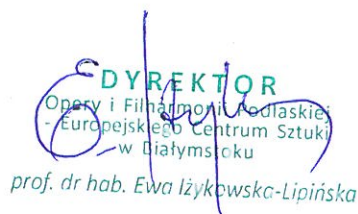 DYREKTOR
Opery i Filharmonii Podlaskiej
- Europejskiego Centrum Sztuki
w Białymstoku
prof. dr hab. Ewa Iżykowska-Lipińska